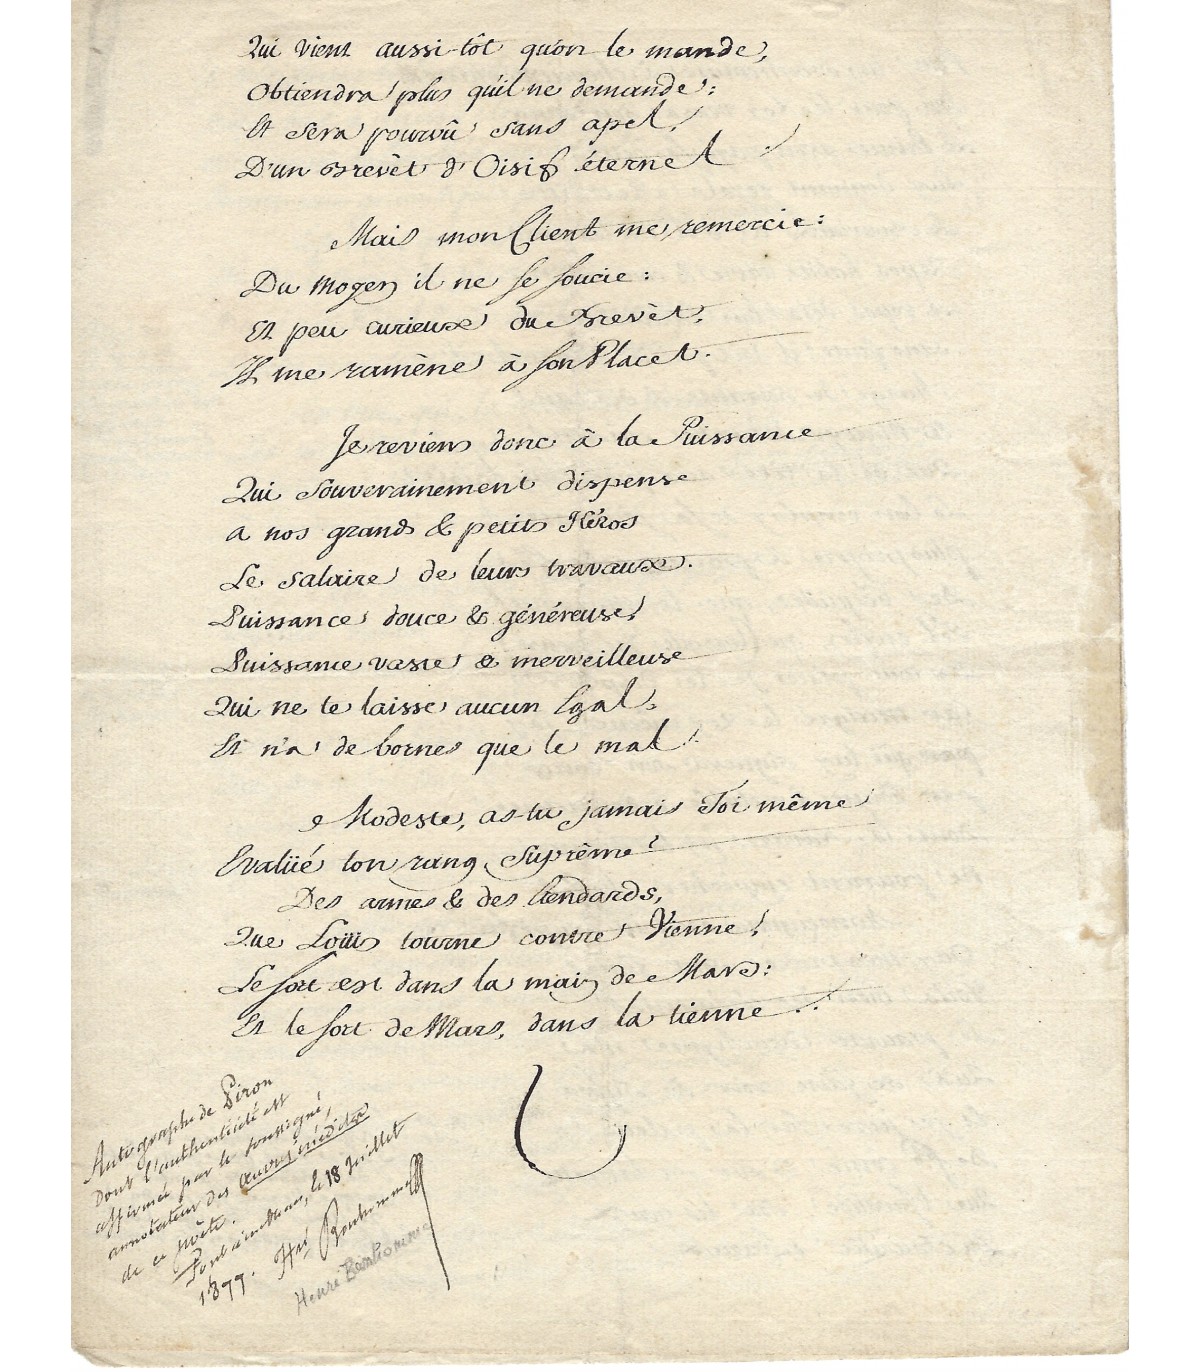 Qui vient aussi-tôt qu'on le mande,
Obtiendra plus qu'il ne demande:
Et sera pourvû sans apel,
D'un Brevèt d'Oisif éternel
Mais mon Client me remercie:
Du moyen il ne se soucie:
Et peu curieux du Brevèt,
Il me ramène à son Placet.
Je reviens donc à la Puissance
Qui souverainement dispense
A nos grands & petits Héros
Le salaire de leurs travaux.
Puissance douce & généreuse!
Puissance vaste & merveilleuse
Qui ne te laisse aucun Egal,
Et n'a de bornes que le mal!
Modeste, as-tu jamais Toi même
Evalüé ton rang Suprême?
Des armes & des Etendards,
Que Loüis tourne contre Vienne!
Le sort est dans la main de Mars:
Et le sort de Mars, dans la tienne..
Autographe de Piron
dont l'authenticité est
affirmée par le soussigné,
annotateur des Œuvres inédites
de ce poète.
le 18 Juillet
1877. Hri Bonhomme
Henri Bonhomme